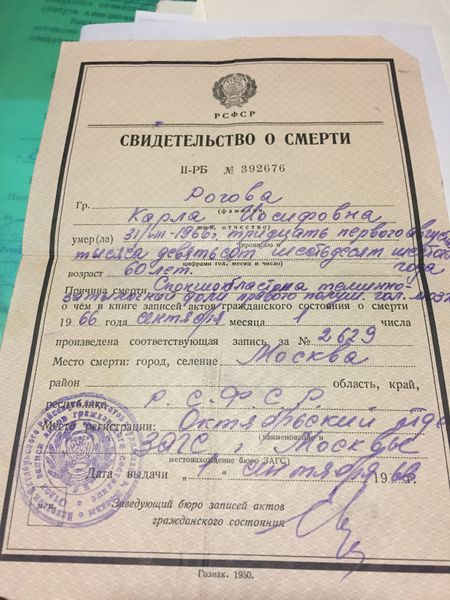 РСФСР
СВИДЕТЕЛЬСТВО О СМЕРТИ
II-РБ № 392676
Гр. Рогова
(фамилия,
Карла Иосифовна
имя, отчество)
умер(ла) 31/VIII-1966г. тридцать первого августа
(прописью и
тысяча девятьсот шестьдесят шестого года
цифрами год, месяц и число)
возраст 60 лет.
Причина смерти Спонгиобластома теменно-
затылочной доли правого полуш. гол. мозга
о чём в книге записей актов гражданского состояния о смерти
1966 года сентября месяца числа
произведена соответствующая запись за № 2629
Место смерти: город, селение Москва
район область, край,
республика Р.С.Ф.С.Р
Место регистрации: Октябрьский отдел
(наименование и
ЗАГС г. Москвы
местонахождение бюро ЗАГС)
Дата выдачи „ 1 " сентября 1966г.
М.П.
Заведующий бюро записей актов
гражданского состояния
Гознак. 1950.